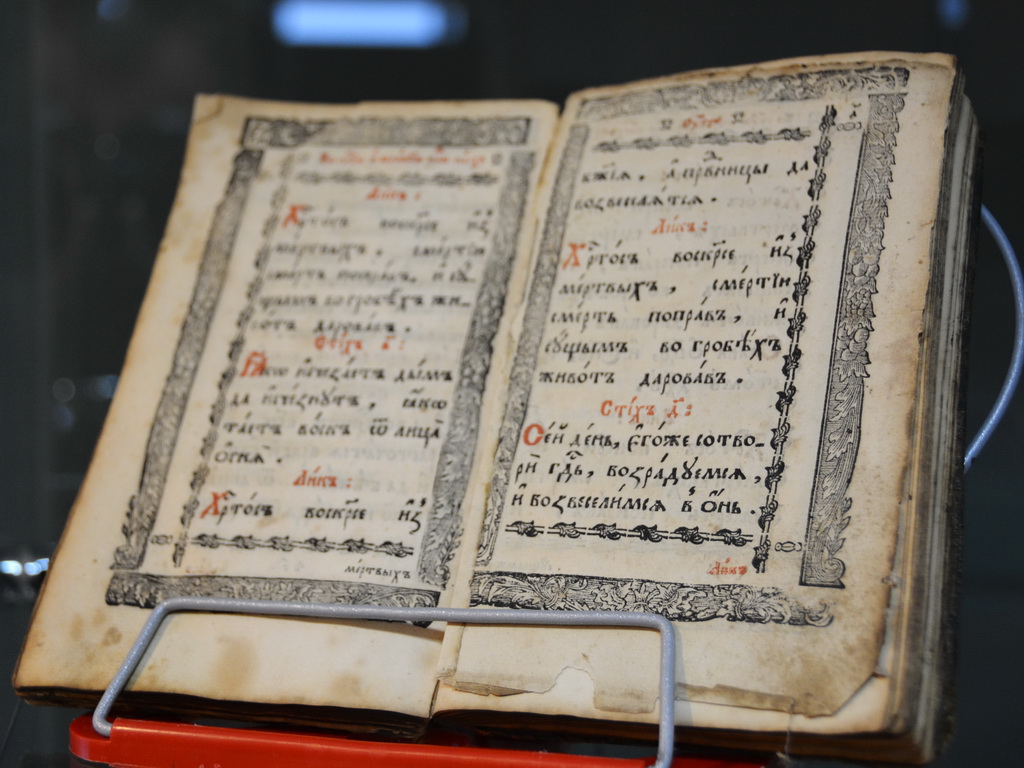 Ликъ :
Хр҃тосъ воскр҃се и҆з̾
мертвыхъ , смертїю
смерть поправъ , и сꙋ-
щымъ во гробѣхъ жи-
вотъ даровавъ .
Стїхъ в҃ :
Ꙗкѡ исчезаетъ дымъ
да исчезнутъ , ꙗкѡ
таетъ воскъ ѿ лица
ѻгнѧ .
Ликъ :
Хр҃тосъ воскр҃се и҆з̾
мертвыхъ
бж҃їѧ , а҆ правницы да
возвеселѧтсѧ .
Ликъ :
Хр҃тосъ воскр҃се и҆з̾
ме́ртвыхъ , сме́ртїю
сме́рть попра́въ , и҆
сꙋ́щымъ во гробѣ́хъ
живо́тъ дарова́въ .
Сті́хъ д҃ :
Се́й де́нь , є҆го́же сотво-
рѝ гдⷭ҇ь , возра́дꙋемсѧ ,
и҆ возвесели́мсѧ в̾ ѻ҆́нь .
Ликъ